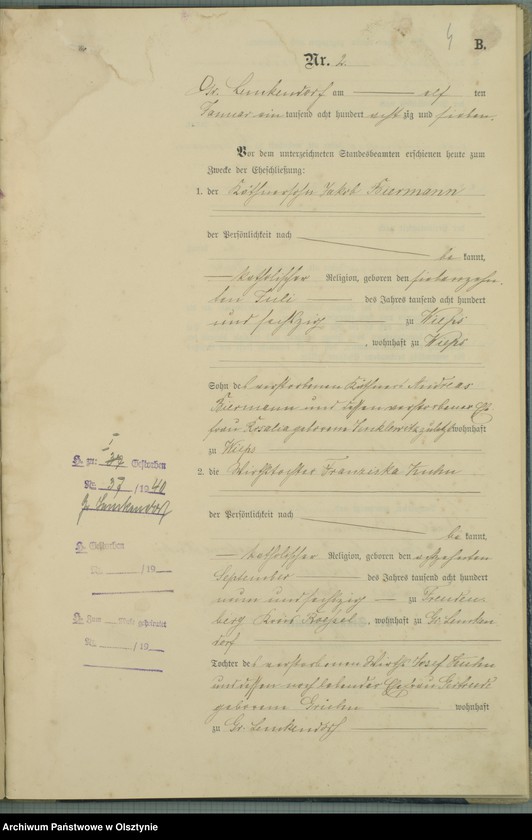 4
B.
Nr. 2.
Gr. Lemkendorf am elf ten
Januar ein tausend acht hundert zig und sieben.
Vor dem unterzeichneten Standesbeamten erschienen heute zum
Zwecke der Eheschließung:
1. der Käthnersohn Jakob Biermann
der Persönlichkeit nach
be kannt,
katholischer Religion, geboren den siebenzehn
ten Juli des Jahres tausend acht hundert
und sechszig zu Wieps
, wohnhaft zu Wieps
Sohn des verstorbenen Käthners Andreas
Biermann und dessen verstorbener Ehe
frau Rosalia geborene zuletzt wohnhaft
zu Wieps
2. die Wirthstochter Franziska Kuhn
der Persönlichkeit nach
be kannt,
katholischer Religion, geboren den achtzehnten
September des Jahres tausend acht hundert
neun und sechszig zu Freuden
berg Kreis Roessel, wohnhaft zu Gr. Lemken
dorf
Tochter des verstorbenen Wirths Josef Kuhn
und dessen noch lebender Ehefrau Gertrud
geborene wohnhaft
zu Gr. Lemkendorf
H. zu: 1 Gestorben
Nr. 37 / 1940
Gr. Lemkendorf
H. Gestorben
Nr. / 19
H. Zum Male geheiratet
Nr. / 19
Archiwum Państwowe w Olsztynie